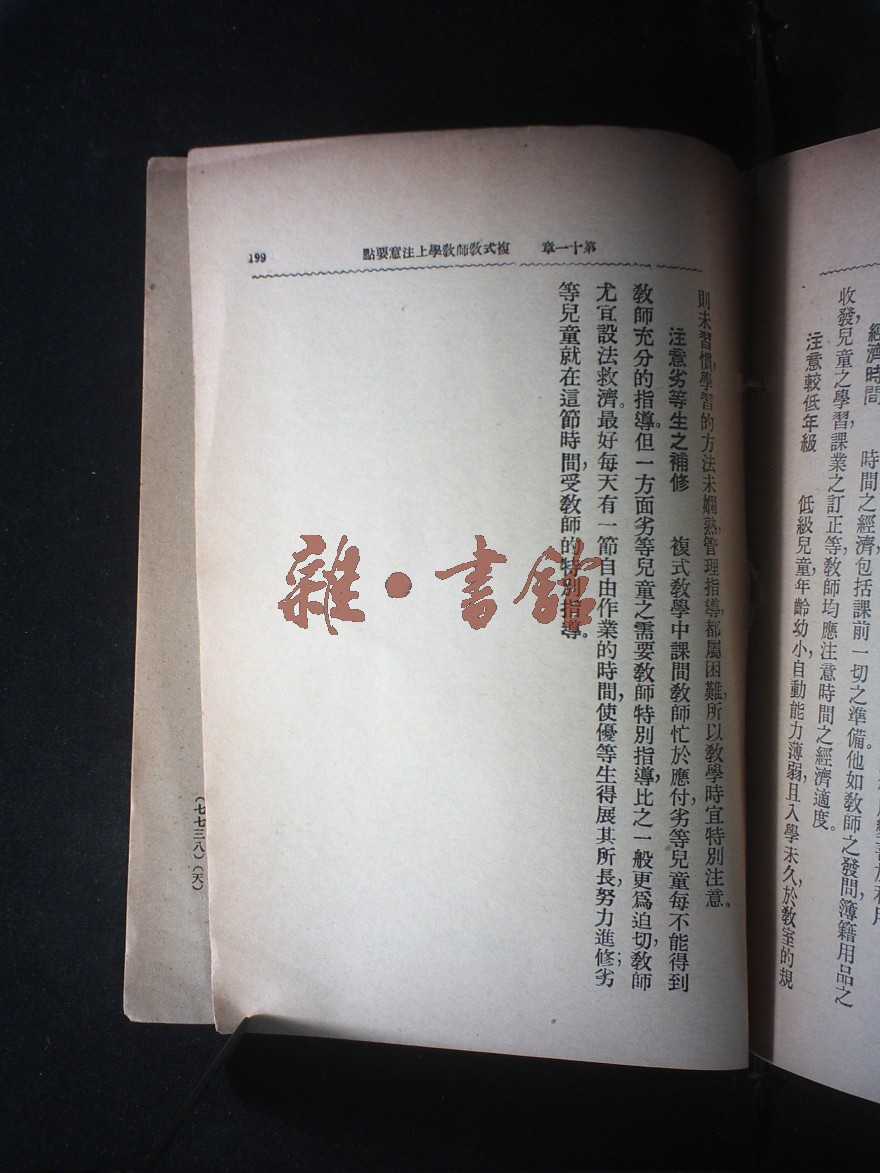 經濟時間　　時間之經濟包括課前一切之準備。他如教師之發問，簿籍用品之
收發，兒童之學習，課業之訂正等，教師均應注意時間之經濟適度。
注意較低年級　　低級兒童，年齡幼小，自動能力薄弱，且入學未久，於教室的規
第十一章　複式教師教學上注意要點
199
則未習慣，學習的方法未嫻熟，管理指導，都屬困難，所以教學時宜特別注意。
注意劣等生之補修　　複式教學中課間教師忙於應付，劣等兒童每不能得到
教師充分的指導。但一方面劣等兒童之需要教師特別指導，比之一般更爲迫切，教師
尤宜設法救濟。最好每天有一節自由作業的時間，使優等生得展其所長，努力進修；劣
等兒童就在這節時間，受教師的特別指導。
（七七三八）（天）
雜・書館